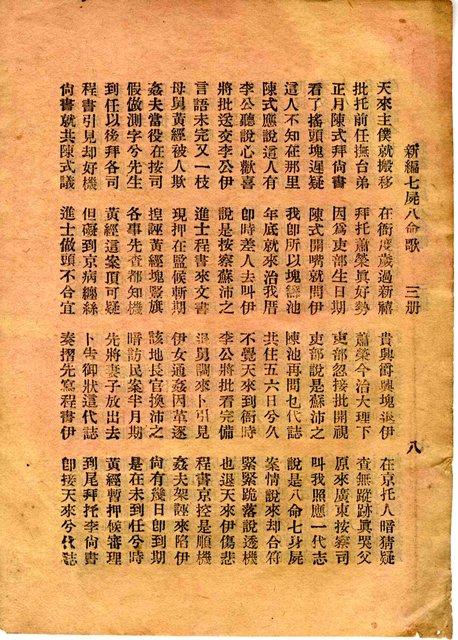 新編七屍八命歌　三册　八
天來主僕就搬移　在衙度歲過新禧　貴興爵興塊退伊　在京托人暗猜疑
批托前任撫台弟　拜托蕭榮真好勢　蕭榮今治大理下　查無蹤跡真哭父
正月陳式拜尙書　因為吏部生日期　吏部忽接批開視　原來廣東按察司
看了搖頭塊遲疑　陳式開嘴就問伊　吏部說是蘇沛之　叫我照應一代志
這人不知在那里　我卽所以塊池　陳池再問乜代誌　說是八命七身屍
陳式應說這人有　年底就來治我厝　共住五六日兮久　案情說來却合符
李公聽說心歡喜　卽時差人去叫伊　不覺天來到衙時　緊緊跪落說透機
將批送交李公伊　說是按察蘇沛之　李公將批看完備　也退天來伊傷悲
言語未完又一枝　進士程書來文書　退舅調來卜引見　程書京控是順機
母舅黃經被人欺　現押在監候斬期　伊女通姦因革逐　姦夫架誣來陷伊
姦夫當役在按司　揑誣黃經塊竪旗　該地長官換沛之　尙有幾日卽到期
假做測字兮先生　各事先查都知機　暗訪民案半月期　是在未到任兮時
到任以後拜各司　黃經這案頂可疑　先將妻子放出去　黃經暫押候審理
程書引見却好機　但礙到京病纏絲　卜告御狀這代誌　到尾拜托李尙書
尙書就共陳式議　進士做頭不合宜　奏摺先寫程書伊　卽接天來兮代誌